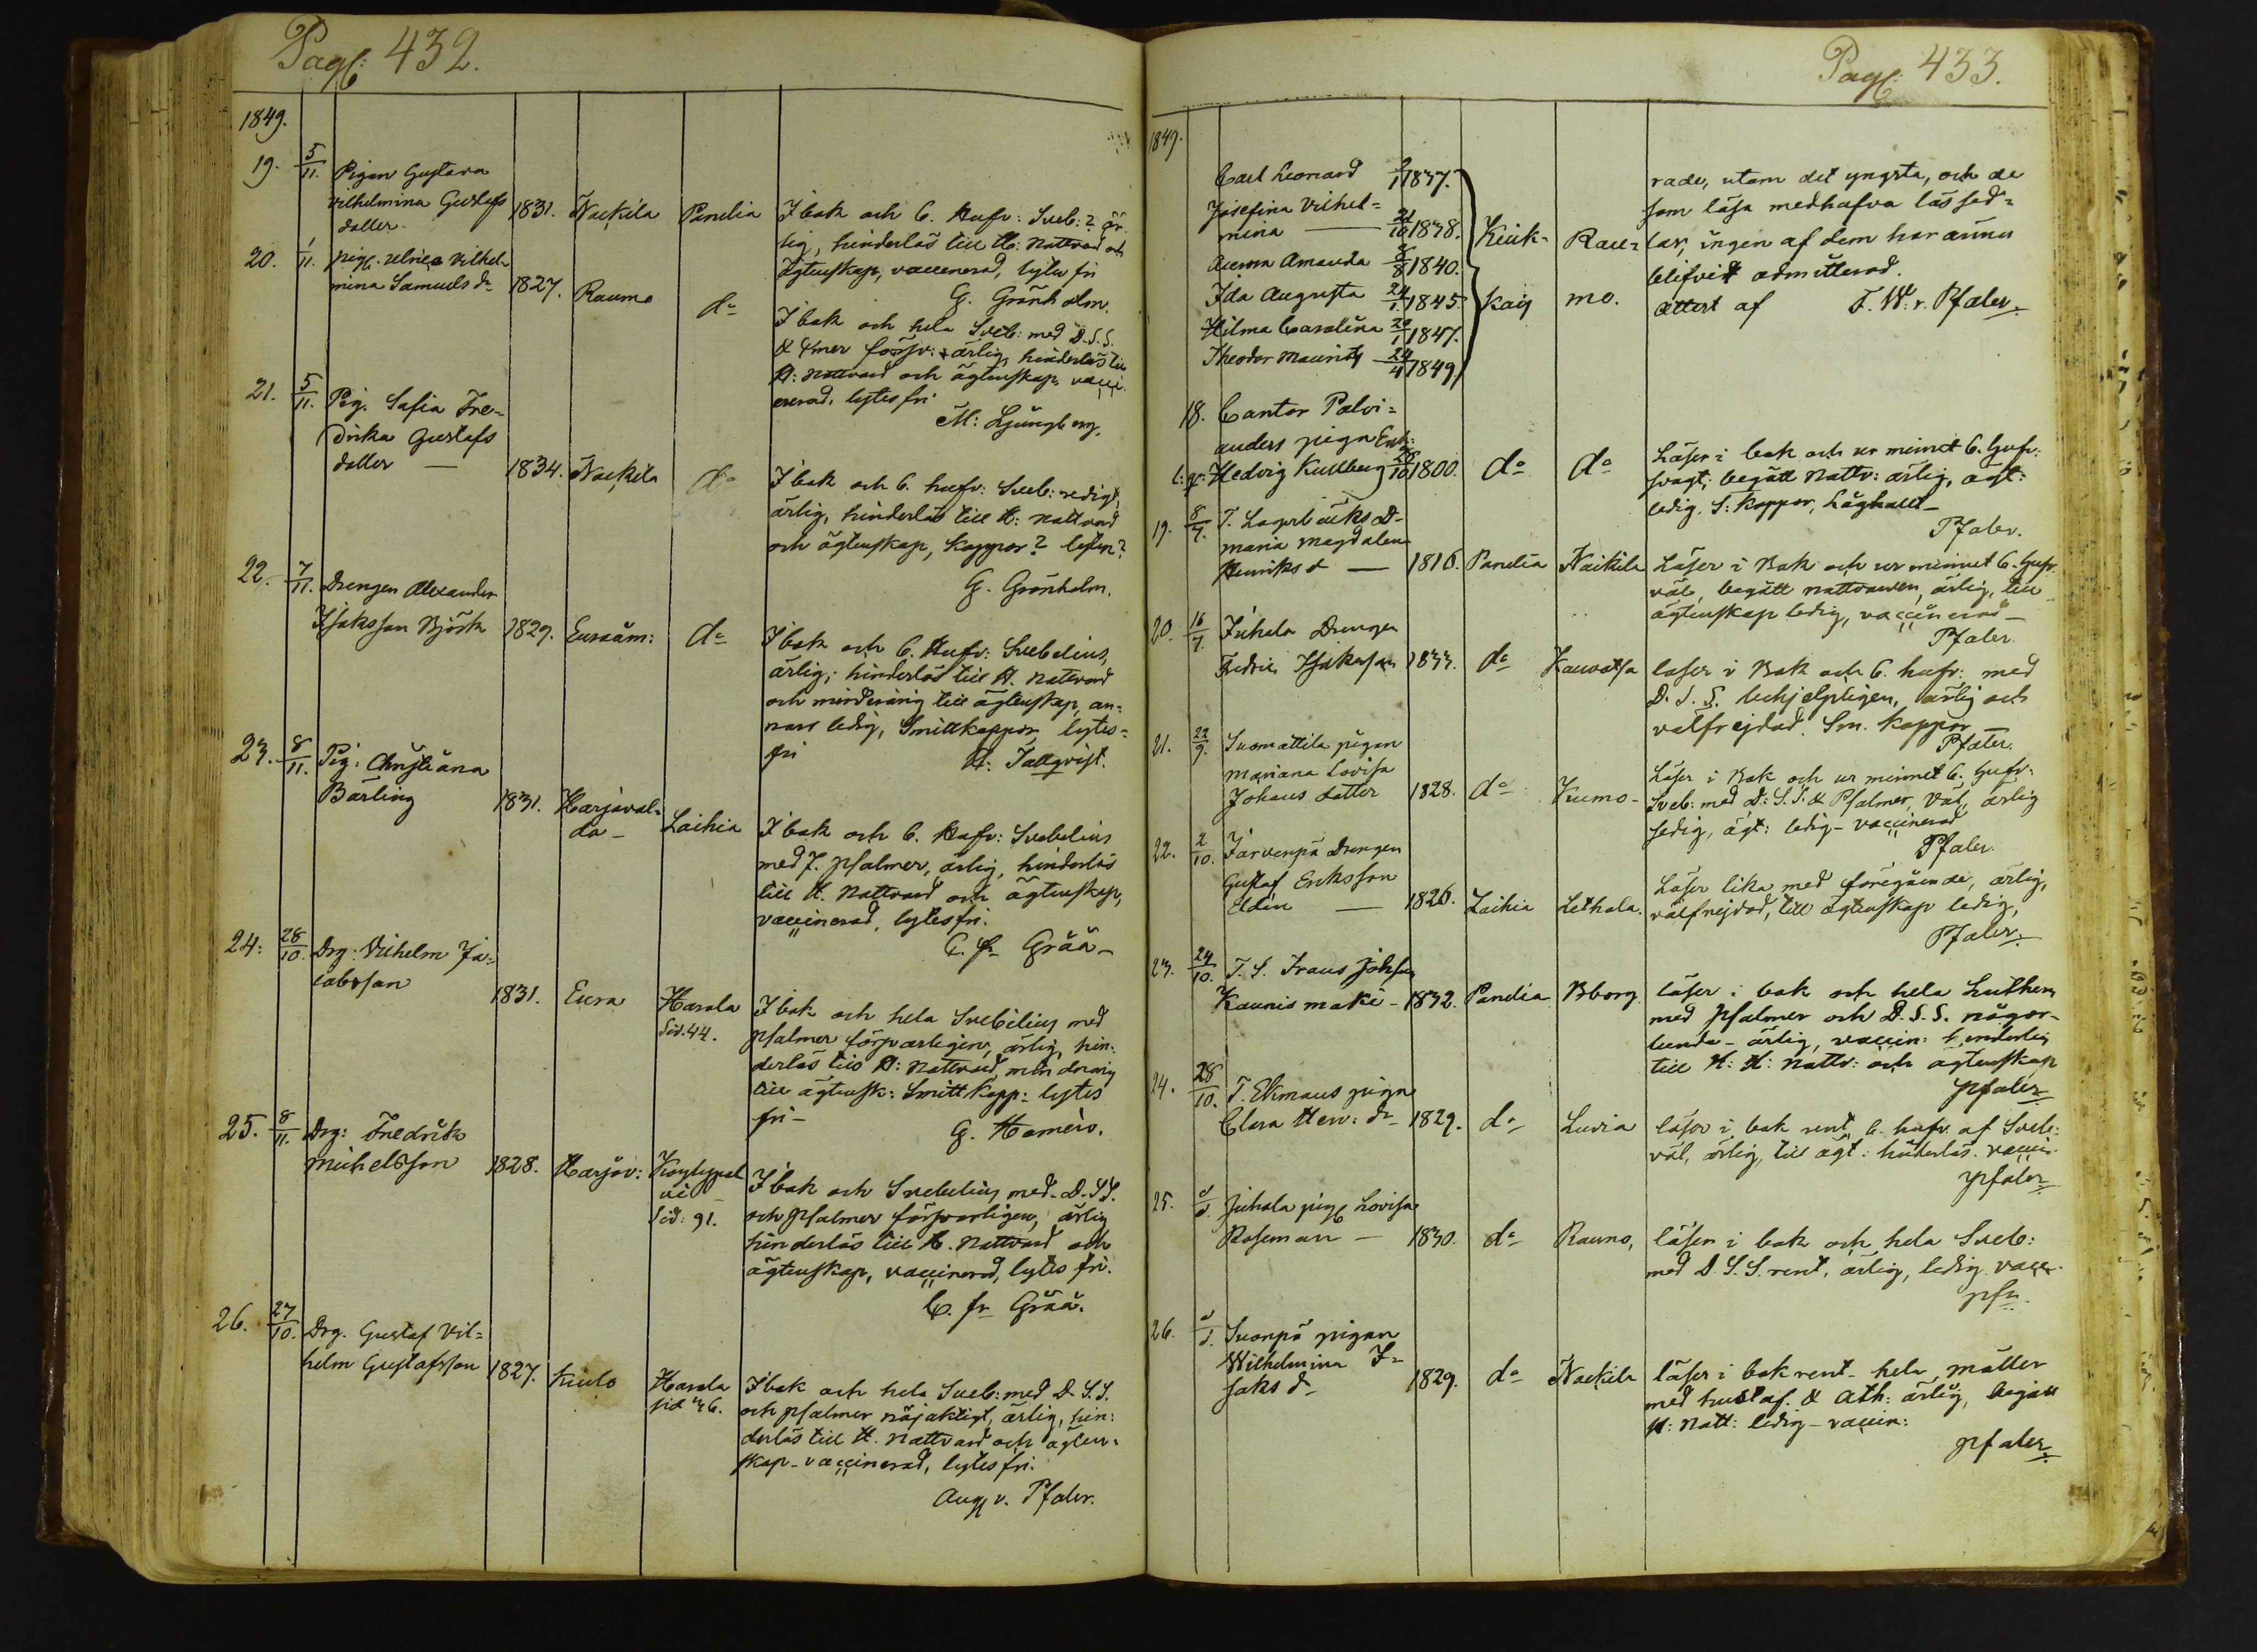 Pag: 432.
1849.
19. 5/11. Pigan Gustava
Vilhelmina Gustafs
dotter. 1831. Nackila Panelia I bok och C. Hufv: Sveb: ? är-
lig, hinderlös till H: Nattvard och
Ägtenskap, vaccinerad, lytes fri
G. Grönholm.
20. 1/11. pig. Ulrica Vilhel-
mina Samuels dr 1827. Raumo do I bok och hela Sveb: med D.S.S.
& försv: ärlig, hinderlös till
H: Nattvard och ägtenskap, vacci-
nerad, lytes fri
M: Ljungberg.
21. 5/11. Pig. Sofia Fre-
drika Gustafs
dotter — 1834. Nackila do I bok och C. hufv: Sveb: redigt,
ärlig, hinderlös till H: nattvard
och ägtenskap, koppor? lyten?
G. Grönholm.
22. 7/11. Drengen Alexander
Isaksson Björk 1829. Euraåm: do I bok och C. Hufv: Svebelius,
ärlig, hinderlös till H. Nattvard
och minderårig till ägtenskap, an-
nars ledig, Smittkoppor, lytes-
fri
A: Tallqvist.
23. 8/11. Pig: Christiana
Bärling 1831. Harjaval-
da — Laihia I bok och C. Hufv: Svebelius
med 7. psalmer, ärlig, hinderlös
till H. Nattvard och ägtenskap,
vaccinerad, lytesfri.
C. fr Gråå —
24: 28/10. Drg: Vilhelm Ja-
cobsson 1831. Eura Harola
Sid. 44. I bok och hela Svebilius med
psalmer försvarligen, ärlig, hin-
derlös till H: Nattvard, minderårig
till ägtensk: Smittkopp: lytes
fri —
G. Homèn.
25. 8/11. Drg: Fredrik
Michelsson 1828. Harjav: Köylypol
vi —
Sid: 91. I bok och Svebelius med D.S.S.
och psalmer försvarligen, ärlig
hinderlös till H. Nattvard och
ägtenskap, vaccinerad, lytes fri.
C. fr Gråå.
26. 27/10. Drg. Gustaf Vil-
helm Gustafsson 1827. Kiulo Harola
sid 36. I bok och hela Sveb: med D.S.S.
och psalmer nöjaktigt, ärlig, hin-
derlös till H. Nattvard och ägten-
skap — vaccinerad, lytes fri.
Aug v. Pfaler.
Pag: 433.
1849.
Carl Leonard 1837. rade, utom det yngsta, och de
Josefina Vilhel- som läsa medhafva läs sed-
mina — 21/10 1838. Keik- Rau- lar, ingen af dem har ännu
Aurora Amanda 8/8 1840. blifvit admitterad.
Ida Augusta 24/1 1845. kais mo. attest af F. W: v. Pfaler.
Hilma Carolina 20/1 1847.
Theodor Maurits 24/4 1849.
18. Cantor Palvi-
anders piga Enk:
Hedvig Kullberg 26/10 1800. do do Läser i bok och ur minnet C. hufv:
svagt; begått Nattv: ärlig, ägt:
ledig. S: Koppor, Låghalt —
Pfaler.
19. 8/7. T. Lagerbäcks D-
Maria Magdalena
Henriks d — 1816. Panelia Naikila Läser i Bok och ur minnet C. hufv
väl, begått nattvarden, ärlig, till
ägtenskap ledig, vaccinerad —
Pfaler.
20. 16/7. Juhola Drengen
Fredric Isaksson 1833. do Kauvatsa läser i Bok och C. hufv: med
D.S.S. behjelpligen, ärlig och
välfrejdad. Sm. Koppor —
Pfaler.
21. 22/9. Suomattila pigan
Mariana Lovisa
Johans dotter 1828. do Kumo — Läser i Bok och ur minnet C. hufv:
Sveb: med D: S.S. & Psalmer, väl, ärlig
sedig, ägt: ledig — vaccinerad
Pfaler.
22. 2/10. Järvenpä Drengen
Gustaf Eriksson
Eldin — 1826. Laihia Lethala. Läser lika med föregående, ärlig,
välfrejdad, till ägtenskap ledig,
Pfaler.
23. 24/10. T. S. Frans Johsson
Kaunismäki — 1832. Panelia Bborg läser i bok och hela Luthers
med psalmer och D.S.S. någor-
lunda — ärlig, vaccin: hinderlös
till H: H: Nattv: och ägtenskap
Pfaler
24. 28/10. T. Ekmans pigan
Clara Hen: dr 1829. do Luvia läser i bok rent C. hufv. af Sveb:
väl, ärlig, till ägt: hinderlös. vaccin.
Pfaler
25. d/d. Juhola pig Lovisa
Roseman — 1830. do Raumo, läser i bok och hela Sveb:
med D.S.S. rent, ärlig, ledig. vacc.
pfr.
26. d/d. Suonpä pigan
Wilhelmina I-
saks d 1829. do Nackila läser i bok rent — hela möller
med hustaf. & Ath: ärlig, begått
H: Natt: ledig — vaccin:
Pfaler.